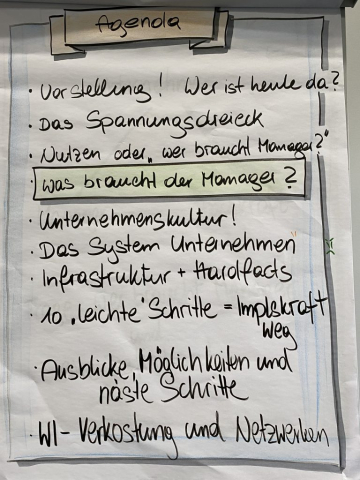 Agenda
· Vorstellung! Wer ist heute da?
· Das Spannungsdreieck
· Nutzen oder „wer braucht Manager?"
· Was braucht der Manager?
· Unternehmenskultur!
· Das System Unternehmen"
· Infrastruktur + Hardfacts
· 10 „leichte" Schritte = Implskraft
Weg
· Ausblicke, Möglichkeiten und
näste Schritte
· WI-Verkostung und Netzwerken